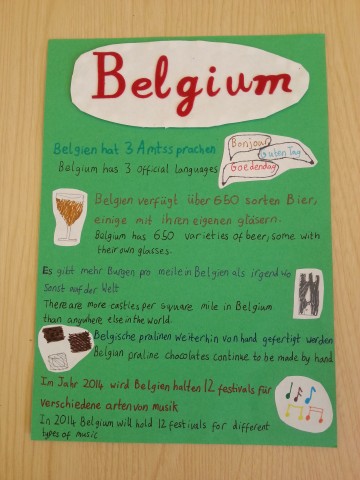 Belgium
Belgien hat 3 Amtssprachen
Bonjour
Guten Tag
Goedendag
Belgium has 3 Official languages
Belgien verfügt über 650 sorten Bier,
einige mit ihren eigenen gläsern.
Belgium has 650 varieties of beer, some with
their own glasses.
Es gibt mehr Burgen pro meile in Belgien als irgendwo
sonst auf der Welt
There are more castles per square mile in Belgium
than anywhere else in the world.
Belgische pralinen weiterhin von hand gefertigt werden
Belgian praline chocolates continue to be made by hand
Im Jahr 2014 wird Belgien halten 12 festivals für
verschiedene arten von musik
In 2014 Belgium will hold 12 festivals for different
types of music